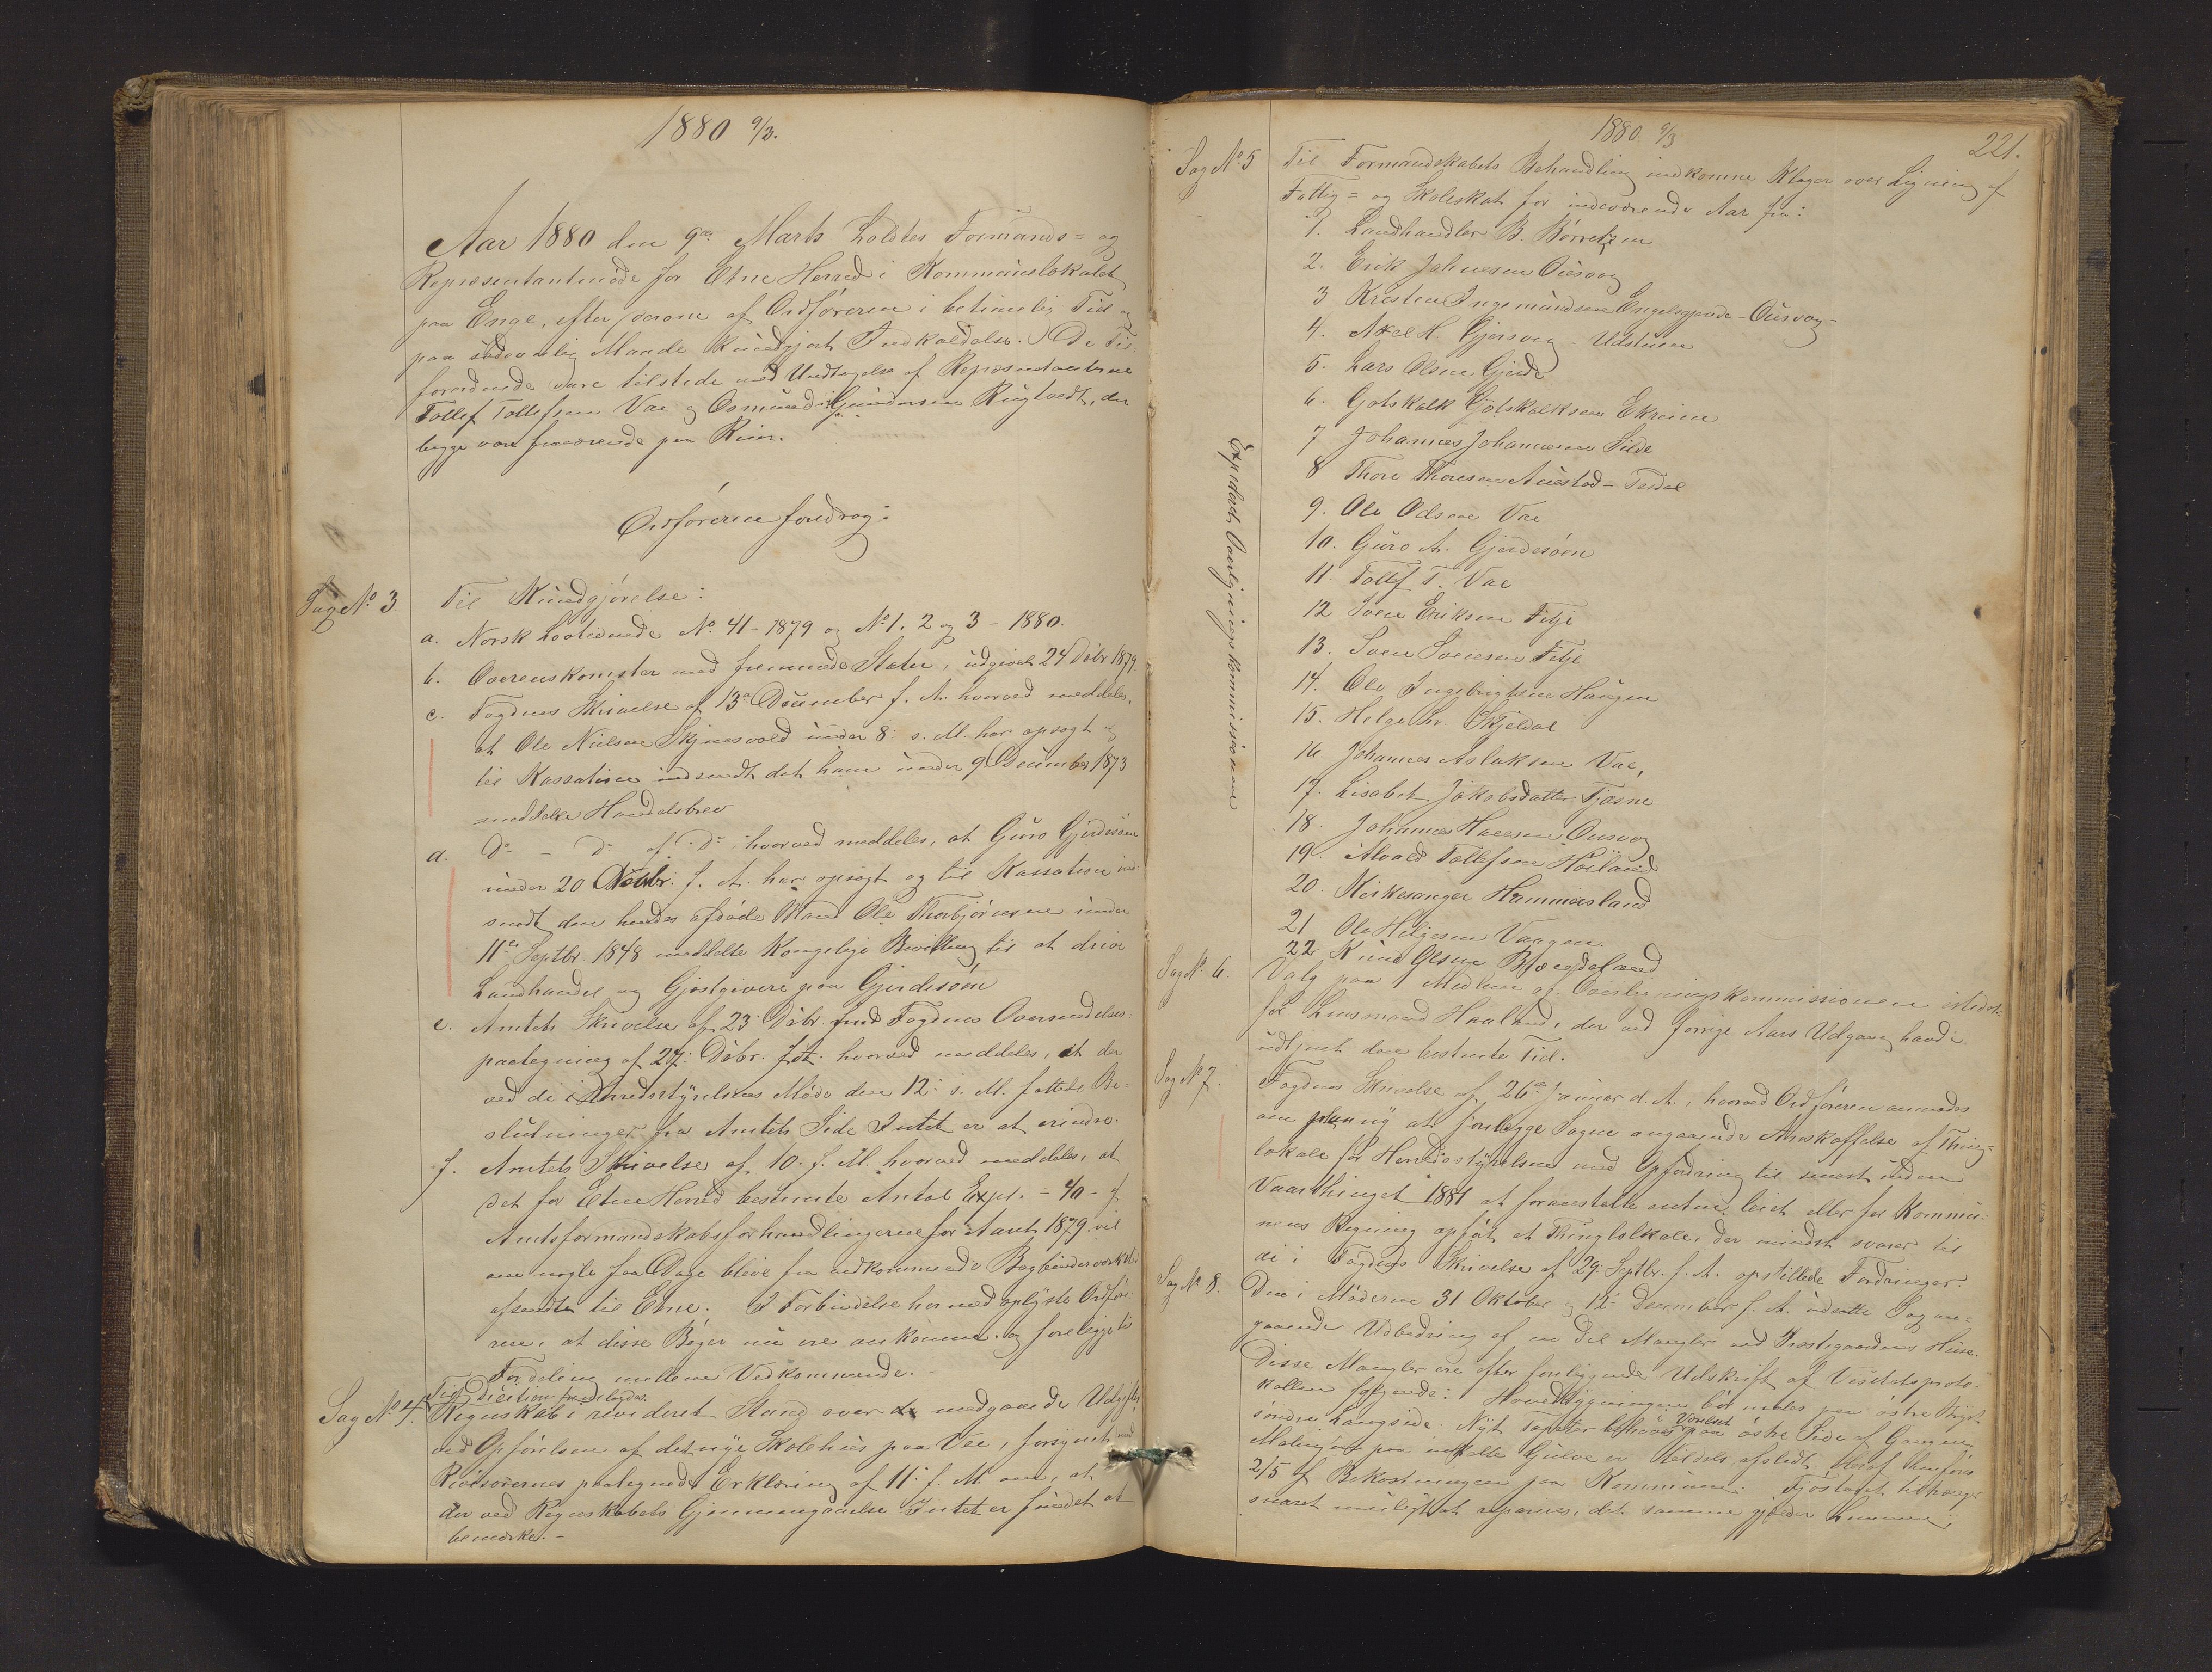 1880 9/3.
Aar 1880 den 9de Marts holdtes Formands= og
Repræsentantmøde for Etne Herred i Kommunelokalet
paa Enge, efter foran af Ordføreren i betimelig Tid og
paa sædvanlig Maade kundgjort Indkaldelse. De Til-
forordnede vare tilstede med Undtagelse af Repræsentanterne
Tollef Tollefsen Vae og Osmund Gundersen Rugtvedt, der
begge vare fraværende paa Reise.
Ordføreren foredrog:
Sag No 3.
Til Kundgjørelse:
a. Norsk Lovtidende No 41-1879 og No 1. 2 og 3 - 1880.
b. Overenskomster med fremmede Stater, udgivet 24 Dcbr 1879.
c. Fogdens Skrivelse af 13de December f. A. hvorved meddeles,
at Ole Nielsen Skjensvold under 8: s. M. har opsagt og
til Kassation indsendt det ham under 9 December 1873
meddelte Handelsbrev
d. Do - Do af Do hvorved meddeles, at Guro Gjerdesøen
under 20 Novbr. f. A. har opsagt og til Kassation ind
sendt den hendes afdøde Mand Ole Thorbjørnsen under
11te Septbr 1848 meddelte Kongelige Bevilling til at drive
Landhandel og Gjæstgiveri paa Gjerdesøen
e. Amtets Skrivelse af 23: Dcbr. med Fogdens Oversendelses-
paategning af 27: Dcbr. f. A. hvorved meddeles, at der
ved de i Herredsstyrelsens Møde den 12: s. M. fattede Be-
slutninger fra Amtets Side Intet er at erindre.
f. Amtets Skrivelse af 10. f. M. hvorved meddeles, at
det for Etne Herred bestemte Antal Expl. - 40 - af
Amtsformandskabsforhandlingerne for Aaret 1879 vil
om nogle faa Dage blive fra vedkommende Bogbinderværksted
afsendte til Etne. I Forbindelse hermed oplyste Ordfø-
reren, at disse Bøger nu ere ankomne og foreligger til
Fordeling mellem Vedkommende.
Sag No 4.
Til Decision fremlagdes
Regnskab i revideret Stand over de medgaaede Udgifter
ved Opførelsen af det nye Skolehus paa Vee, forsynet med
Revisorernes paategnede Erklæring af 11: f. M. om, at
der ved Regnskabets Gjennemgaaelse Intet er fundet at
bemærke. -
1880. 9/3
221.
Sag No 5
Til Formandskabets Behandling indkomne Klager over Ligning af
Fattig= og Skoleskat for indeværende Aar fra:
1. Landhandler B. Børretzen
2. Erik Johnesen Ousvog
3 Kristen Ingemundsen Engelsgjerde - Ousvog -
4. Axel H. Gjersvig - Udstuen
5. Lars Olsen Gjerde
6. Gotskalk Gotskalksen Ekreim
7 Johannes Johannesen Silde
8 Thore Thoresen Austad - Tesdal
9. Ole Olsen Vae
10. Guro A. Gjerdesøen
11. Tollef T. Vae
12 Sven Eriksen Fitje
13. Sven Svensen Fitje
14. Ole Ingebrigtsen Haugen
15. Helge Hr. Skjeldal
16. Johannes Aslaksen Vae,
17. Lisabet Jakobsdatter Tjosne
18. Johannes Hansen Ousvog
19. Alvald Tollefsen Høiland
20. Kirkesanger Hammersland
21 Ole Helgesen Vaagen.
22 Knud Olsen Bjøngdeland
Expederet, Overligningskommissionen
Sag No 6.
Valg paa 1 Medlem af Overligningskommissionen istedet
for Lensmand Haaland, der ved forrige Aars Udgang havde
udtjent den bestemte Tid.
Sag No 7.
Fogdens Skrivelse af 26de Januar d. A., hvorved Ordføreren anmodes
om paany at forelægge Sagen angaaende Anskaffelse af Thing-
lokale for Herredsstyrelsen med Opfordring til senest inden
Vaarthinget 1881 at foranstalte enten leiet eller for Kommu-
nens Regning opført et Thinglokale, der mindst svarer til
de i Fogdens Skrivelse af 29: Septbr. f. A. opstillede Fordringer.
Sag No 8.
Den i Møderne 31 Oktober og 12: December f. A. udsatte Sag an-
gaaende Udbedring af en Del Mangler ved Præstegaardens Huse.
Disse Mangler ere efter foreliggende Udskrift af Visitatsproto-
kollen følgende: Hovedbygningen bør males paa østre Side og
søndre Langside. Nyt Tapeter behøves Værelset paa østre Side af Gangen
Malingen paa Gulve er tildels afslidt. Heraf henføres
2/5 af Bekostningen paa Kommunen. Fjøstaget tiltrænger
snarest muligt at repareres, det samme gjælder